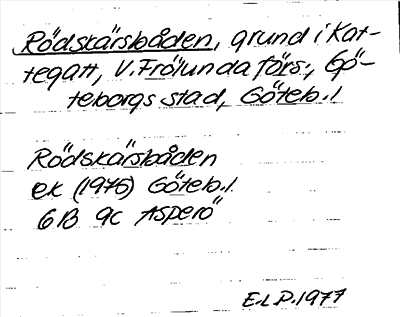 Rödskärsbåden, grund i Kat-
tegatt, V. Frölunda förs., Gö-
teborgs stad, Göteb.l.
Rödskärsbåden
ek (1975) Göteb.l.
6B 9c Asperö
E.L.P. 1977